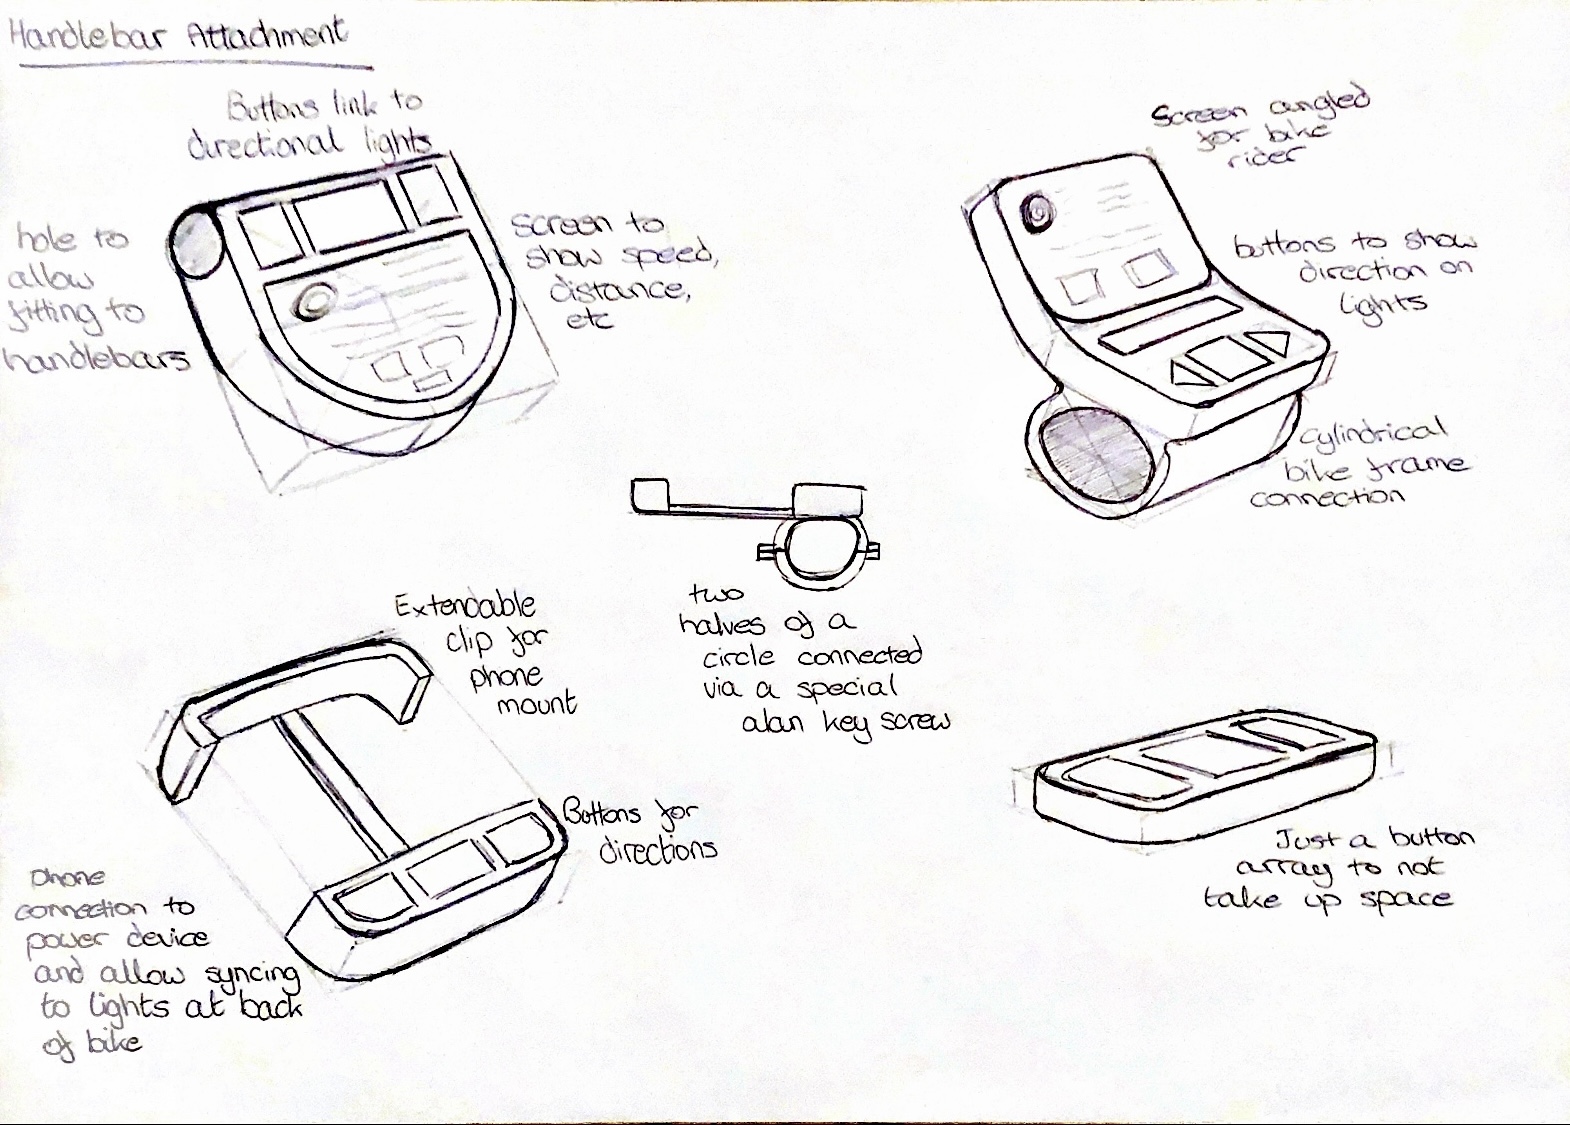 Handlebar Attachment
Buttons link to
directional lights
hole to
allow
fitting to
handlebars
screen to
show speed,
distance,
etc
Screen angled
for bike
rider
buttons to show
direction on
lights
cylindrical
bike frame
connection
two
halves of a
circle connected
via a special
alan key screw
Extendable
clip for
phone
mount
Buttons for
directions
phone
connection to
power device
and allow syncing
to lights at back
of bike
Just a button
array to not
take up space